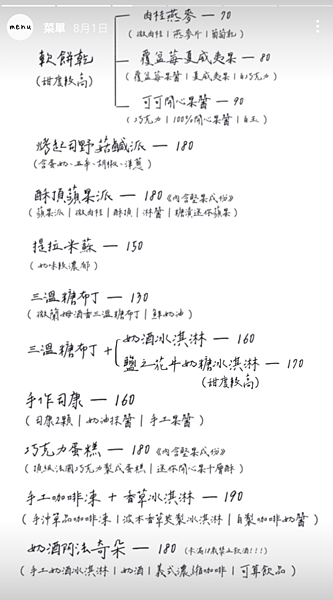 menu 菜單 8月1日
肉桂燕麥 — 70
(微肉桂 | 燕麥片 | 葡萄乾)
軟餅乾
(甜度較高)
覆盆莓夏威夷果 — 80
(覆盆莓果醬 | 夏威夷果 | 白巧克力)
可可開心果醬 — 90
(巧克力 | 100%開心果醬 | 白玉)
烤起司野菇鹹派 — 180
(含蛋奶、五辛、胡椒、洋蔥)
酥頂蘋果派 — 180《內含堅果成份》
(蘋果派 | 微肉桂 | 酥頂 | 淋醬 | 糖漬迷你蘋果)
提拉米蘇 — 150
(奶味較濃郁)
三溫糖布丁 — 130
(微蘭姆酒香三溫糖布丁 | 鮮奶油)
三溫糖布丁 +
奶酒冰淇淋 — 160
鹽之花牛奶糖冰淇淋 — 170
(甜度較高)
手作司康 — 160
(司康2顆 | 奶油抹醬 | 手工果醬)
巧克力蛋糕 — 180《內含堅果成份》
(頂級法國巧克力製成蛋糕 | 迷你開心果千層酥)
手工咖啡凍 + 香草冰淇淋 — 190
(手沖單品咖啡凍 | 波本香草莢製冰淇淋 | 自製咖啡奶醬)
奶酒阿法奇朵 — 180 (未滿18歲禁止飲酒!!!)
(手工奶酒冰淇淋 | 奶酒 | 義式濃縮咖啡 | 可算飲品)